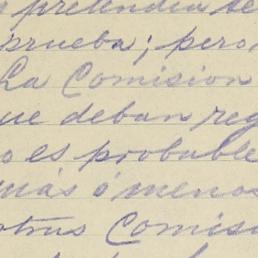 pretendia se
prueba; pero
La Comision
ue deban reg
o es probable
más ó menos
otras Comisi